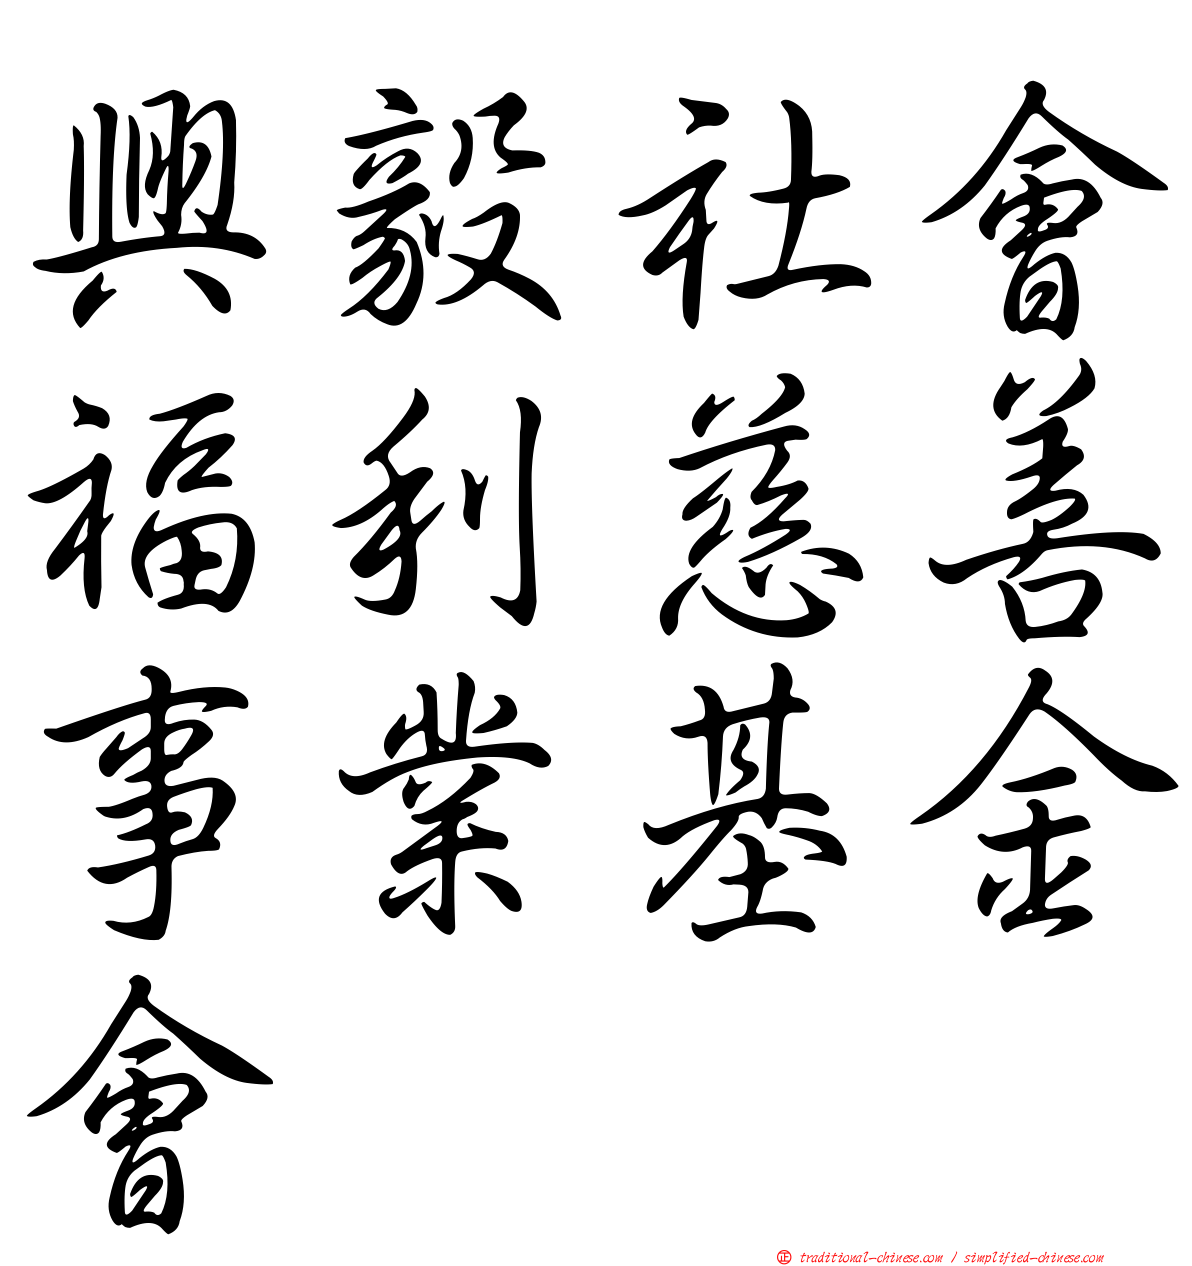 興毅社會
福利慈善
事業基金
會
正 traditional-chinese.com / simplified-chinese.com